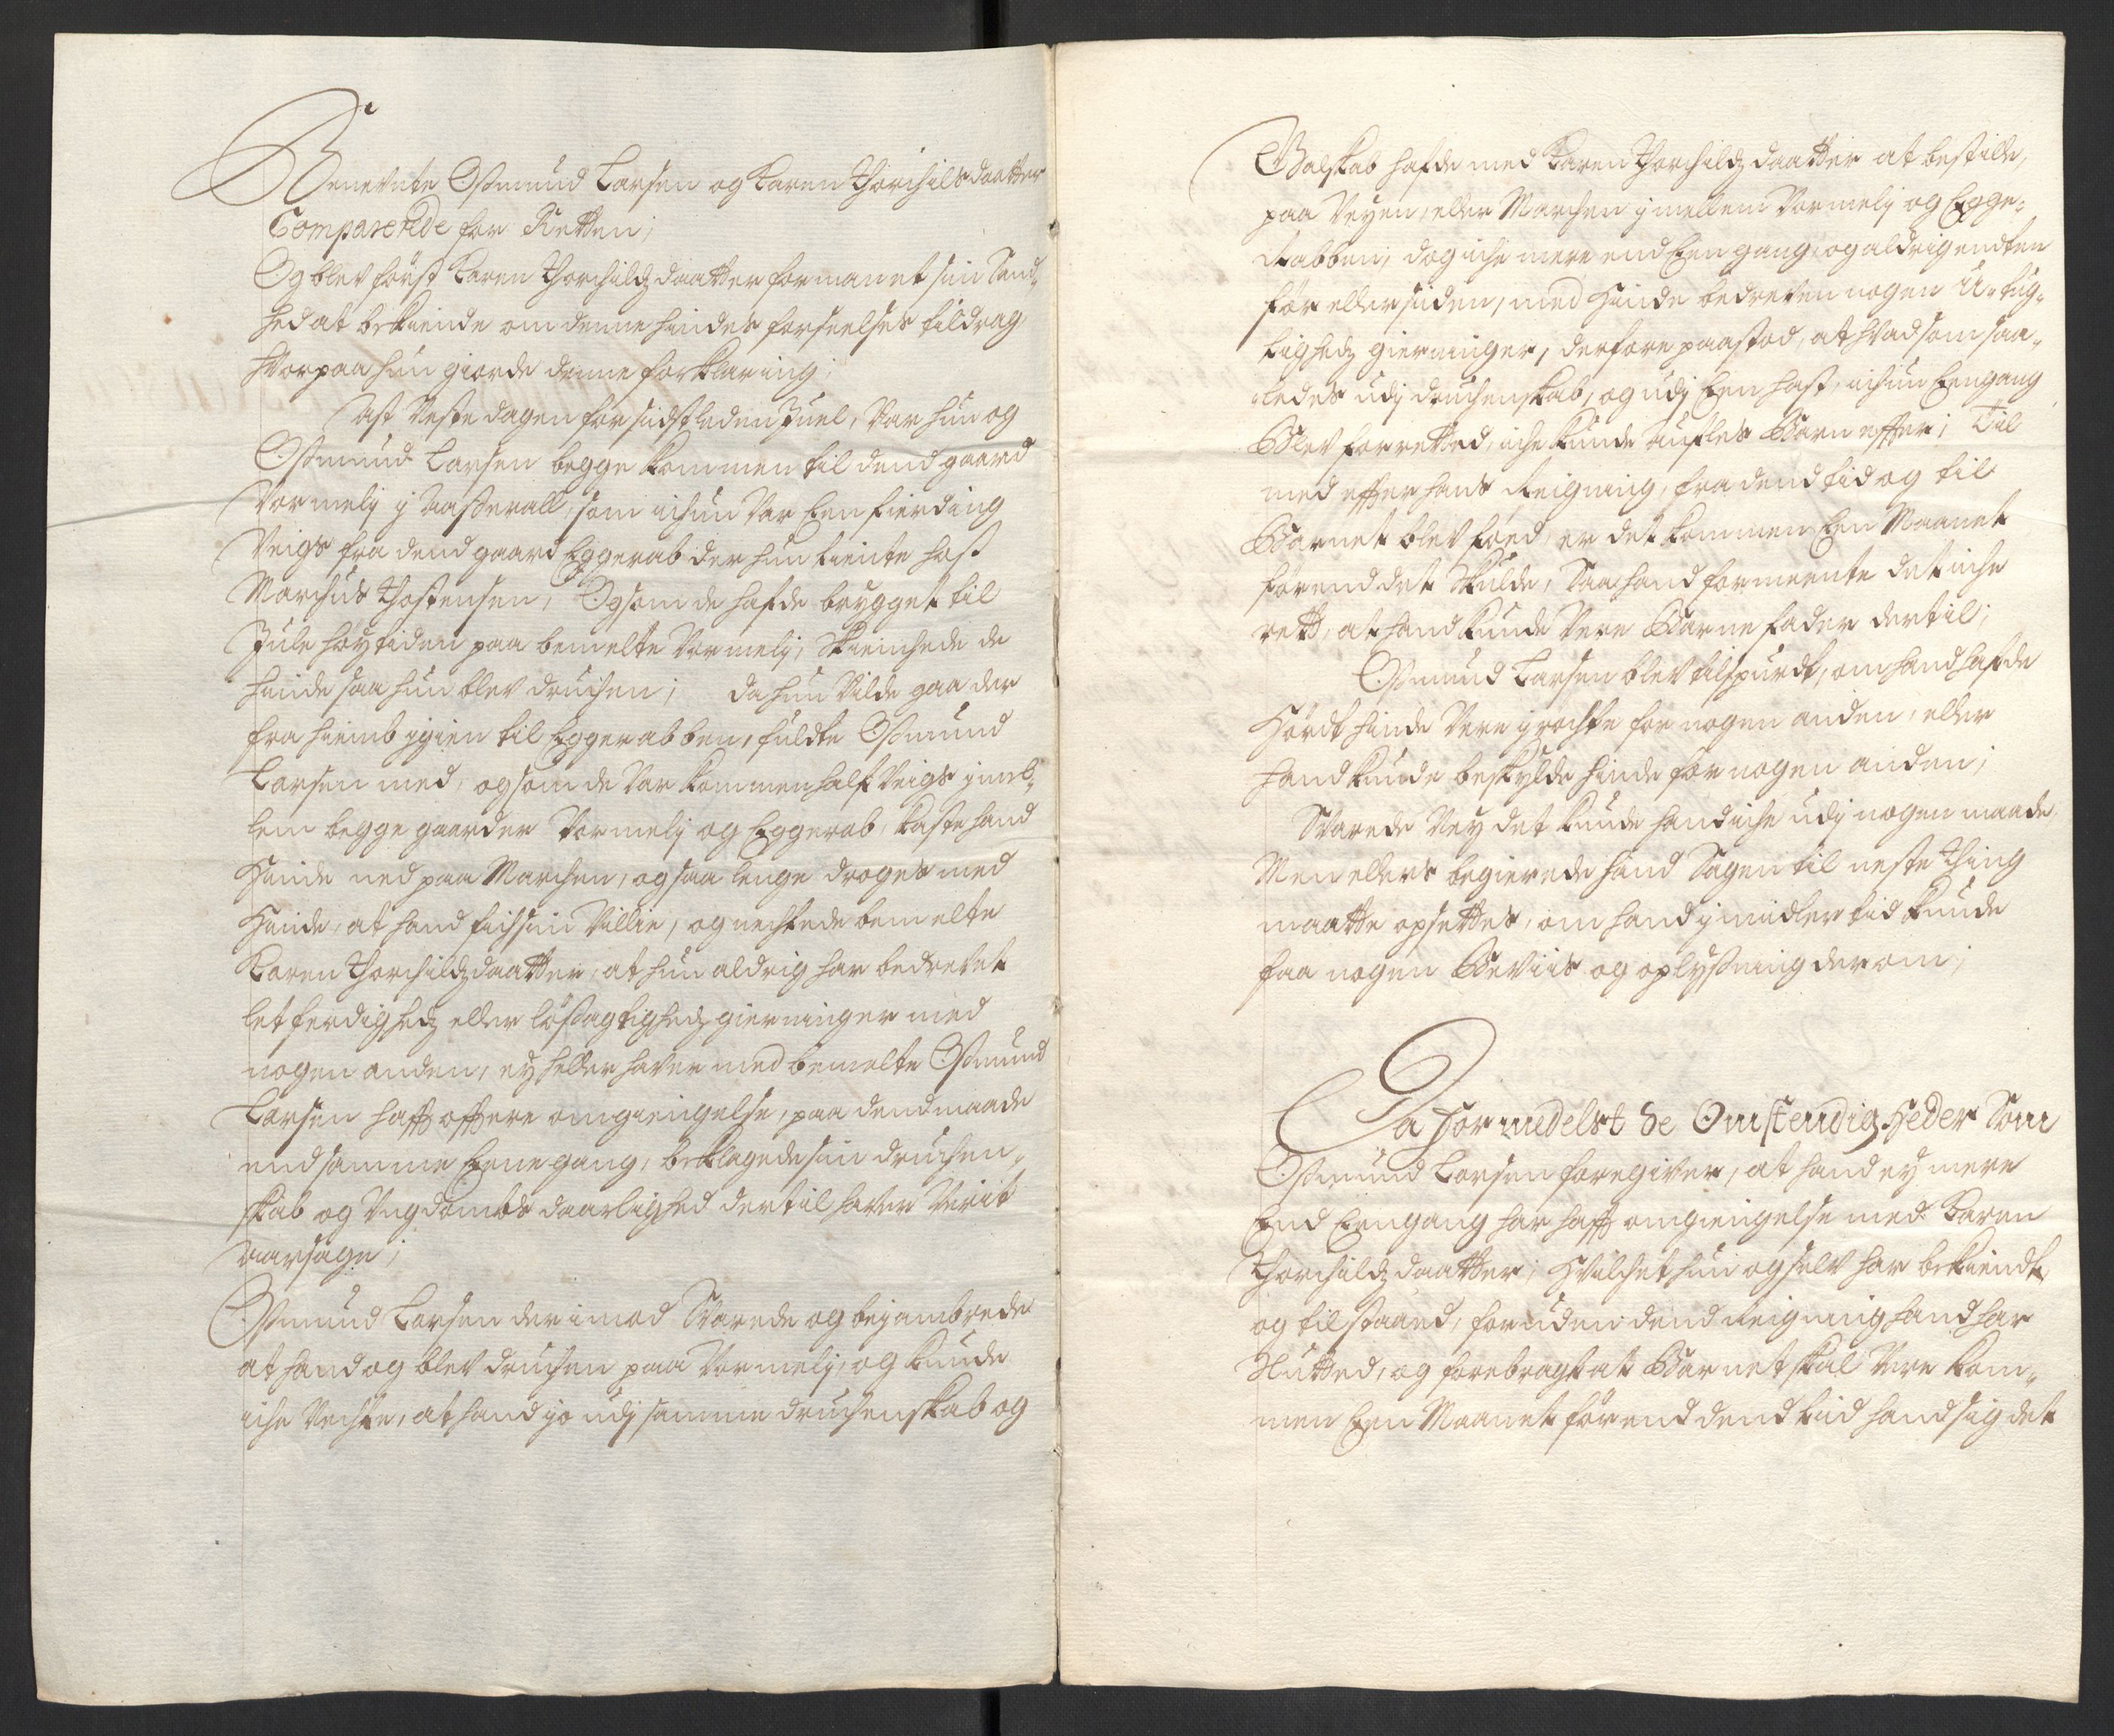 Benevnte Osmund Larsen og Karen Thorchilsdaatter
Comparerede for Retten;
Og blev først Karen Thorchildzdaatter formanet sin Sand¬
hed at bekiende om denne hindes forseelses tildrag
hvorpaa hun giorde denne forklaring;
Ast Neste dagen for sidstleden Juel, Var hun og
Osmund Larsen begge kommen til dend gaard
Vormelj j Aaserall, som ichun Var Een fierding
Veigs fra dend gaard Eggerab der hun tiente hos
Marchus Thostensen, Og som de hafde brygget til
Jule høytiden paa bemelte Vormelj, Skienchede de
hinde saa hun blev druchen; da hun Vilde gaa der
fra hiemb igien til Eggerabben, fuldte Osmund
Larsen med, og som de Var kommen half Veigs imel¬
lem begge gaarder Vormelj og Eggerab, kaste hand
Hinde ned paa Marchen, og saa lenge droges med
Hinde, at hand fich sin Villie, og nechtede bemelte
Karen Thorchildzdaatter, at hun aldrig har bedrevet
letferdighedz eller løsagtighedz gierninger med
nogen anden, ej heller haver med bemelte Osmund
Larsen hafft offtere omgiengelse, paa dend maade
end samme Eene gang, beklagede sin druchen¬
skab og Ungdombs daarlighed dertil haver Verit
aarsage;
Osmund Larsen derimod Svarede og bejambrede
at hand og blev druchen paa Vormelj, og kunde
iche Nechte, at hand jo udj samme druchenskab og
Galskab hafde med Karen Thorchildzdaatter at bestille,
paa Veyen, eller Marchen jmellem Vormelj og Egge¬
Rabben, dog iche mere end Een gang, og aldrig endten
før eller siden, med Hinde bedreven nogen U-tug¬
tighedz gierninger, derfore paastod, at hvad som saa¬
ledes udj druchenskab, og udj Een hast, ichun Eengang
Blev forretted, iche kunde aufles Barn effter; Til
med effter hans Reigning, fra dend tid og til
Barnet blev føed, er det kommen Een Maanet
førend det Skulde, Saa hand formeente det iche
rett, at hand kunde Vere Barne fader dertil;
Osmund Larsen blev tilspurdt, om hand hafde
Hørdt hinde Vere j rochte for nogen anden, eller
hand kunde beskylde hinde for nogen anden;
Svarede Nej det kunde hand iche udj nogen maade,
Men ellers begierede hand Sagen til neste thing
maatte opsettes, om hand jmidler tid kunde
faa nogen Beviis og oplysning derom;
Da Formedelst de Omstendigheder Som
Osmund Larsen foregiver, at hand ej mere
End Eengang har hafft omgiengelse med Karen
Thorchildzdaatter; Hvilchet hun og selv har bekiendt,
og tilstaaed, foruden dend Reigning hand har
Nutted, og forebragt at Barnet skal Vere kom¬
men Een Maanet førend dend tiid hand sig det